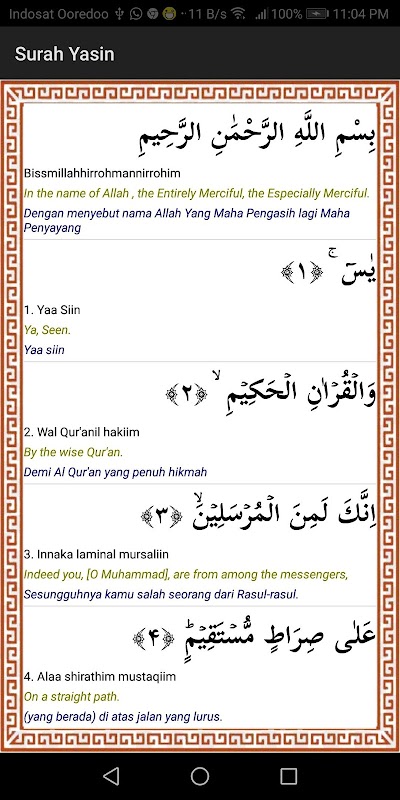 Indosat Ooredoo ·· 11 B/s 100% 11:04 PM
Surah Yasin
بِسْمِ اللَّهِ الرَّحْمَٰنِ الرَّحِيمِ
Bissmillahhirrohmannirrohim
In the name of Allah , the Entirely Merciful, the Especially Merciful.
Dengan menyebut nama Allah Yang Maha Pengasih lagi Maha
Penyayang
يٰسٓ ۚ ﴿١﴾
1. Yaa Siin
Ya, Seen.
Yaa siin
وَالْقُرْاٰنِ الْحَكِيْمِ ۙ ﴿٢﴾
2. Wal Qur'anil hakiim
By the wise Qur'an.
Demi Al Qur'an yang penuh hikmah
اِنَّكَ لَمِنَ الْمُرْسَلِيْنَۙ ﴿٣﴾
3. Innaka laminal mursaliin
Indeed you, [O Muhammad], are from among the messengers,
Sesungguhnya kamu salah seorang dari Rasul-rasul.
عَلٰى صِرَاطٍ مُّسْتَقِيْمٍؕ ﴿۴﴾
4. Alaa shirathim mustaqiim
On a straight path.
(yang berada) di atas jalan yang lurus.